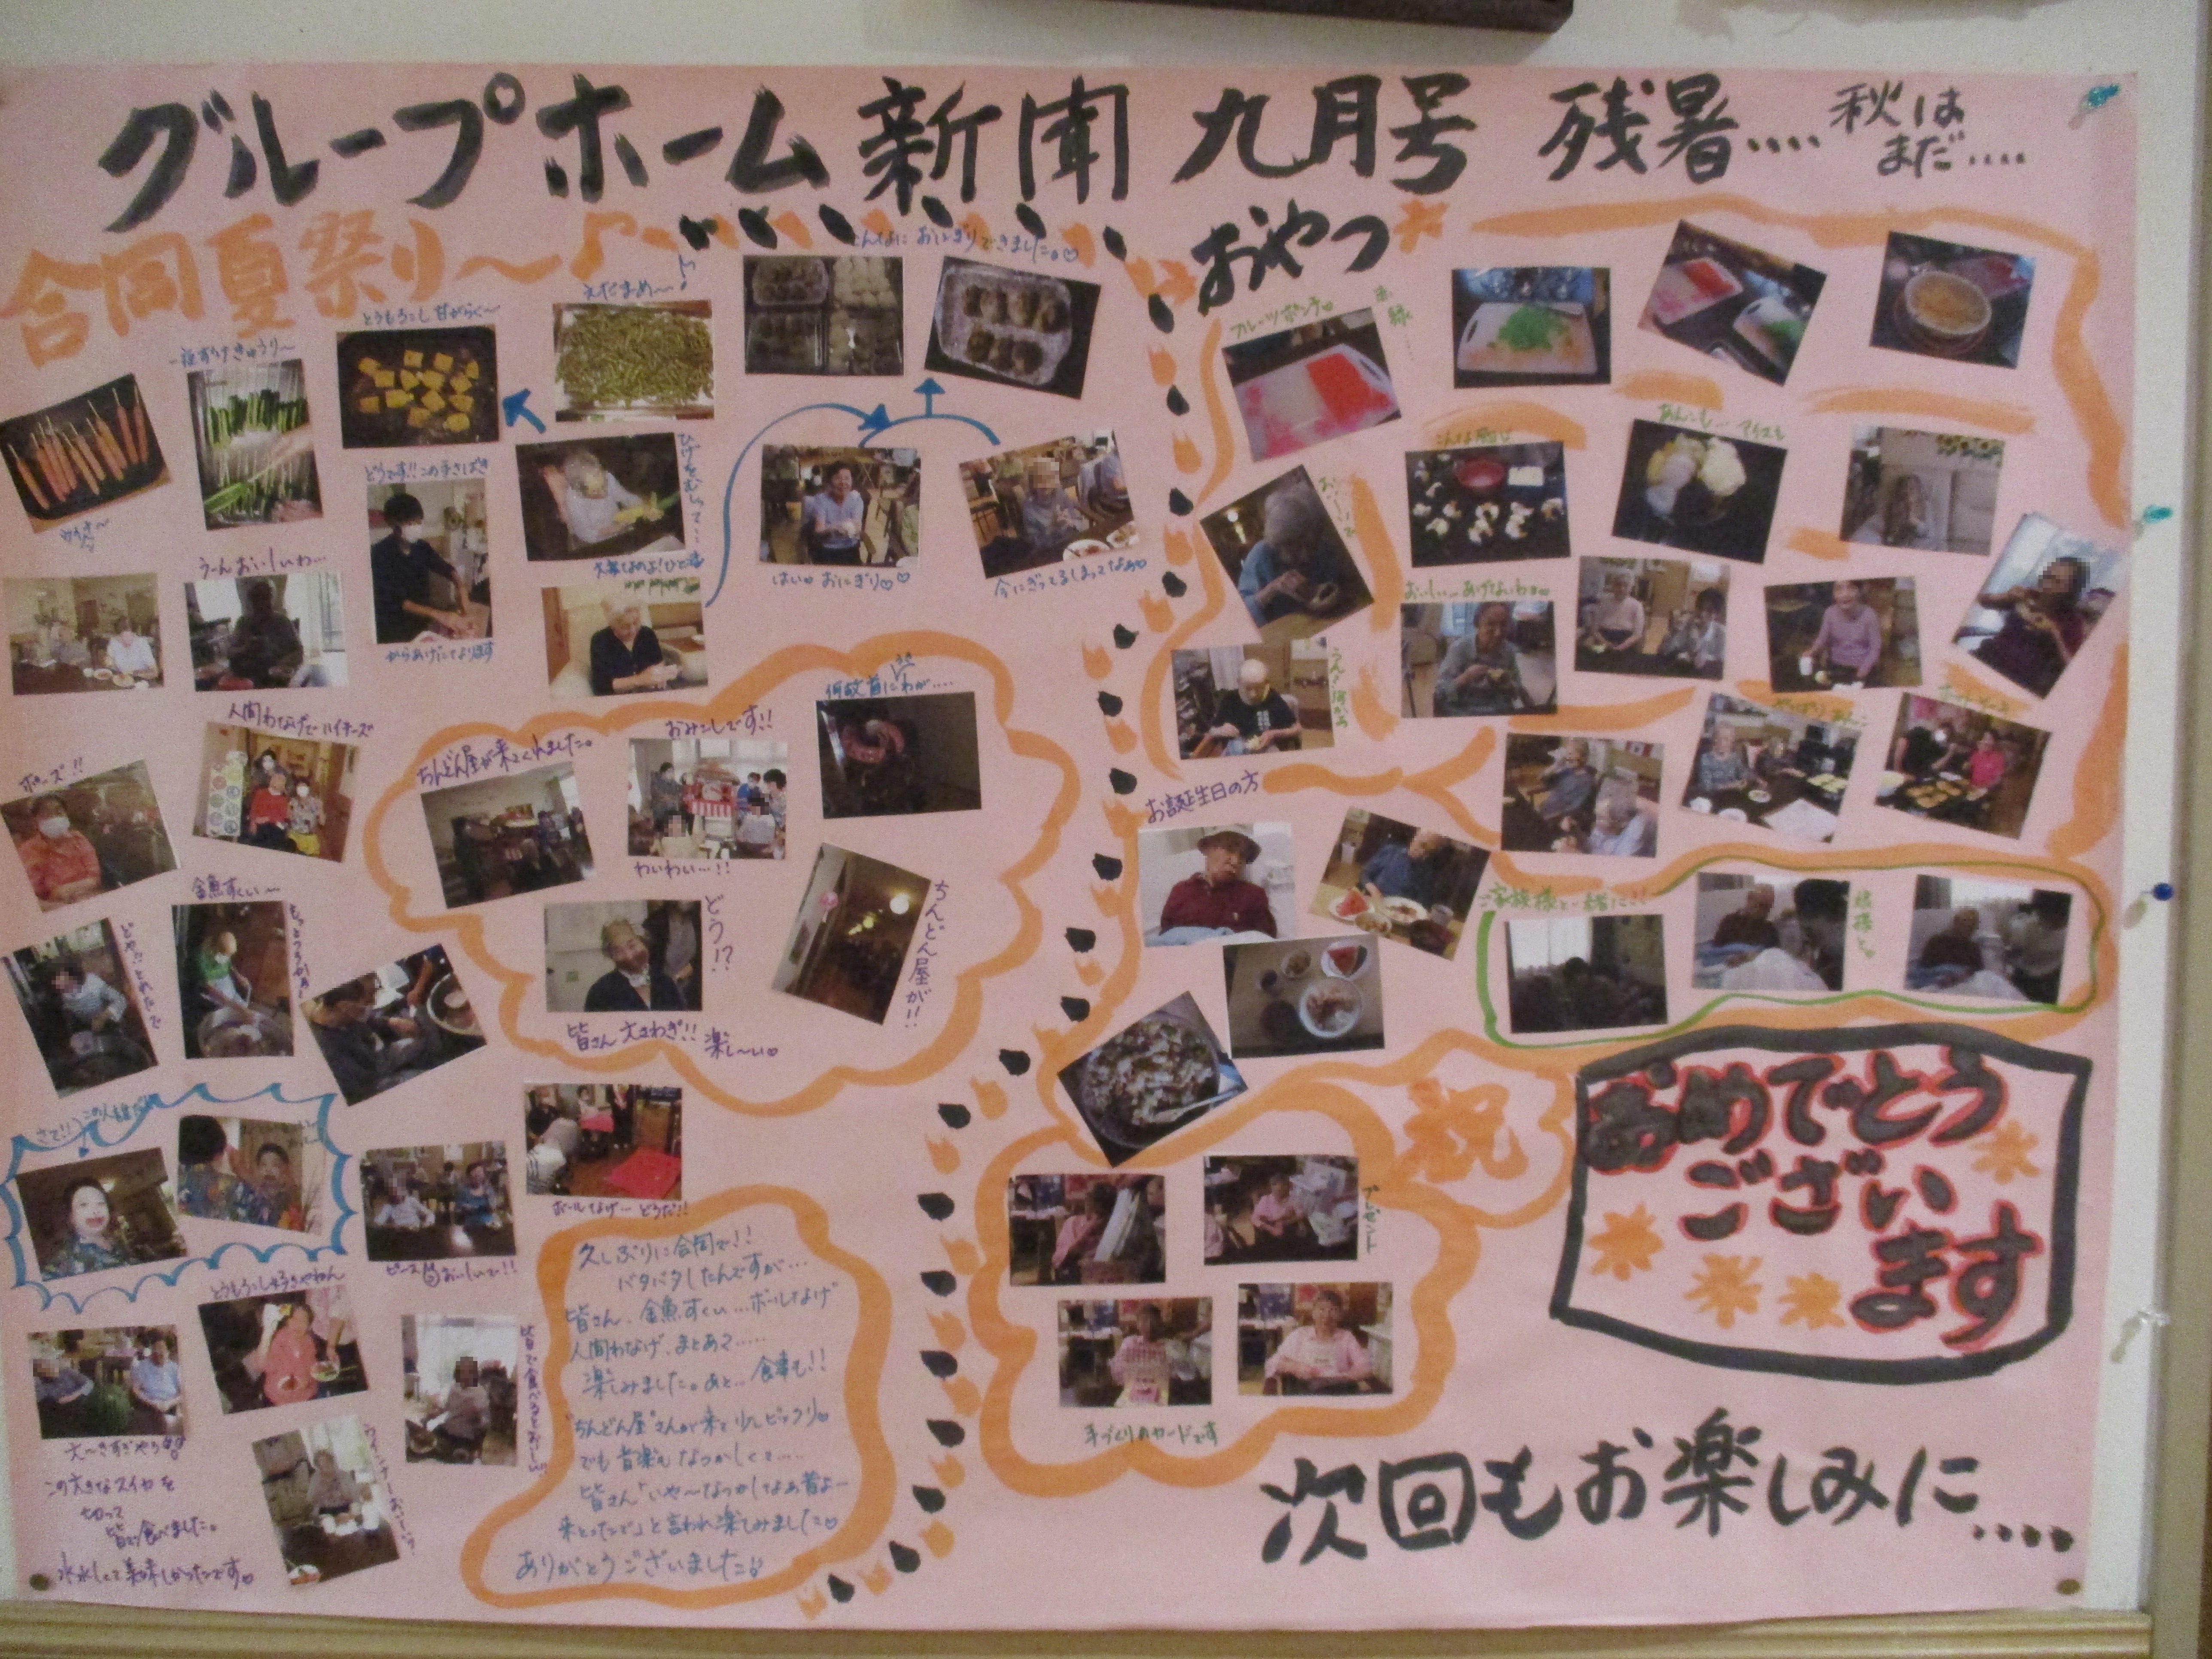 グループホーム新聞 九月号 残暑.... 秋は
まだ....
合同夏祭り～♪
とうもろこし 甘がらく～
えだまめ～♪
こんなに おにぎりできました。♡
どうです!!この手さばき
からあげになります
はい♡ おにぎり♡♡
今にぎってるしまってなぁ♡
う～んおいしいわ...
人間わなげでハイチーズ
ポーズ!!
金魚すくい～
ちんどん屋が来てくれました。
おみこしです!!
わいわい...!!
どう!?
ちんどん屋が!!
皆さん大さわぎ!! 楽し～い♡
さて!! この人誰だ
ボールなげ... どうだ!!
とうもろこし好きやねん
皆で食べるとおいしい
大～きすぎやろ
この大きなスイカを
切って
皆で食べました。
冷えてて美味しかったです♡
久しぶりに合同で!!
バタバタしたんですが...
皆さん、金魚すくい...ボールなげ
人間わなげ、まとあて.....
楽しみました。あと... 食事も!!
"ちんどん屋"さんが来て少しビックリ♡
でも音楽もなつかしくて....
皆さん「いや～なつかしなぁ昔よー
来とったで」と言われ楽しみました♡
ありがとうございました♪
おやつ
フルーツポンチ♡
赤
緑....
こんな感じ
あんこも... アイスも
おいしい... あげないわ♡
うん？何かぁ
やっぱりあんこ
ホットケーキ
お誕生日の方
ご家族様と一緒に!!
祝
おめでとう
ござい
ます
プレゼント
手づくりのカードです
次回もお楽しみに....